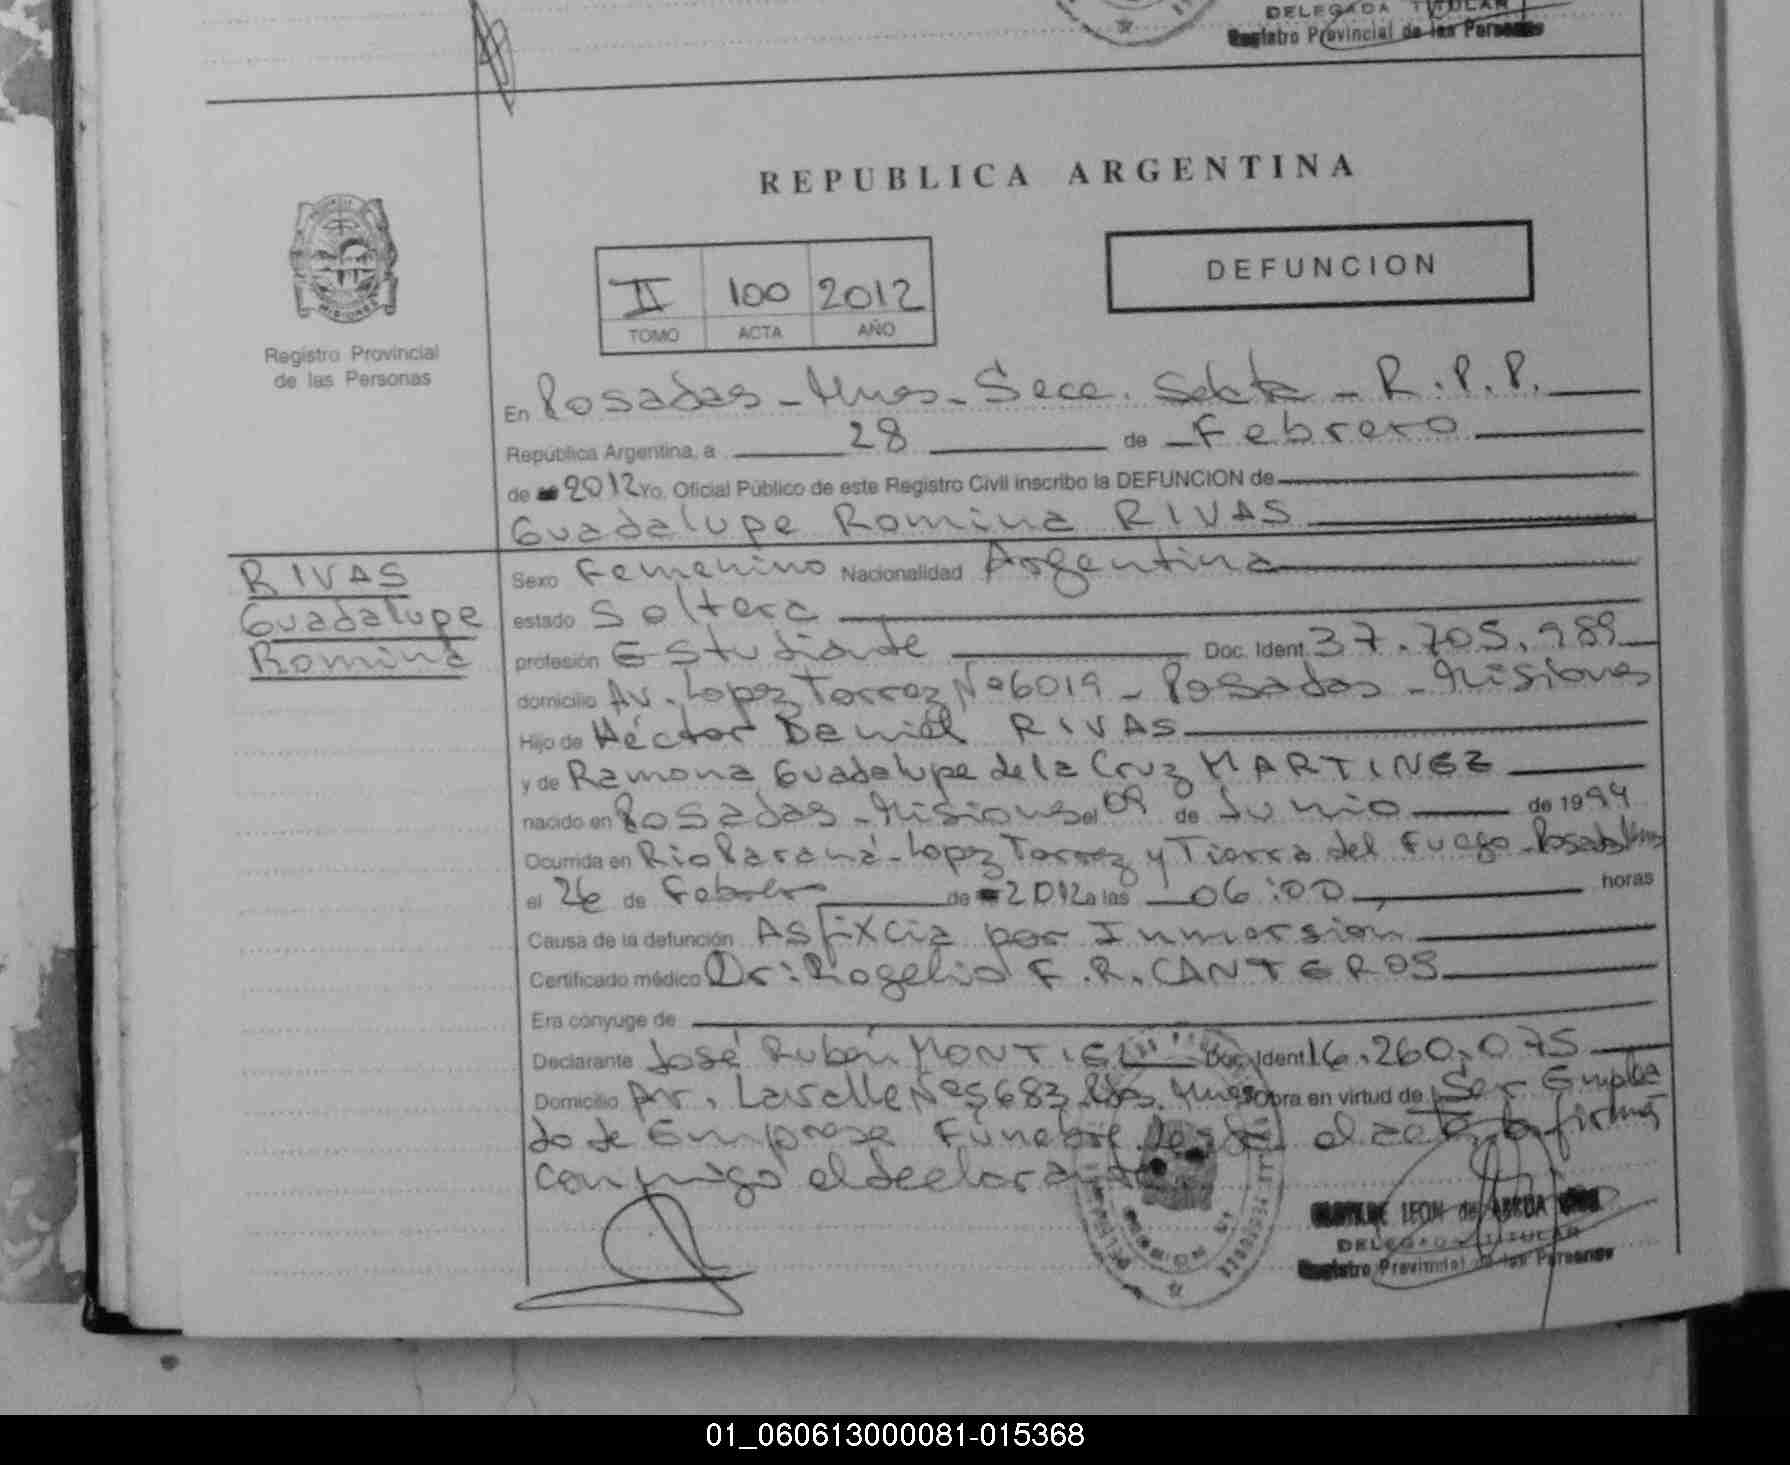 DELEGADA TITULAR
Registro Provincial de las Personas
REPUBLICA ARGENTINA
DEFUNCION
II 100 2012
TOMO ACTA AÑO
MISIONES
Registro Provincial
de las Personas
En Posadas - Mnes - Secc. Sexta - R.P.P.
República Argentina, a 28 de Febrero
de 2012 Yo, Oficial Público de este Registro Civil inscribo la DEFUNCION de
Guadalupe Romina RIVAS
RIVAS
Guadalupe
Romina
Sexo Femenino Nacionalidad Argentina
estado Soltera
profesión Estudiante Doc. Ident. 37.705.989
domicilio Av. Lopez Torrez Nº 6019 - Posadas - Misiones
Hijo de Héctor Daniel RIVAS
y de Ramona Guadalupe de la Cruz MARTINEZ
nacido en Posadas - Misiones el 09 de Junio de 1994
Ocurrida en Rio Paraná - Lopez Torrez y Tierra del Fuego - Posadas Mnes
el 26 de Febrero de 2012 a las 06:00 horas
Causa de la defunción Asfixcia por Inmersion
Certificado médico Dr: Rogelio F.R. CANTEROS
Era cónyuge de
Declarante José Rubén MONTIEL Doc. Ident 16.260.075
Domicilio Av. Lavalle Nº 5683 Pdas. Mnes Obra en virtud de Ser Emplea
do de Empresa Funebre el acta firma
conmigo el declarante
LEON de
DELEGADA TITULAR
Registro Provincial de las Personas
01_060613000081-015368